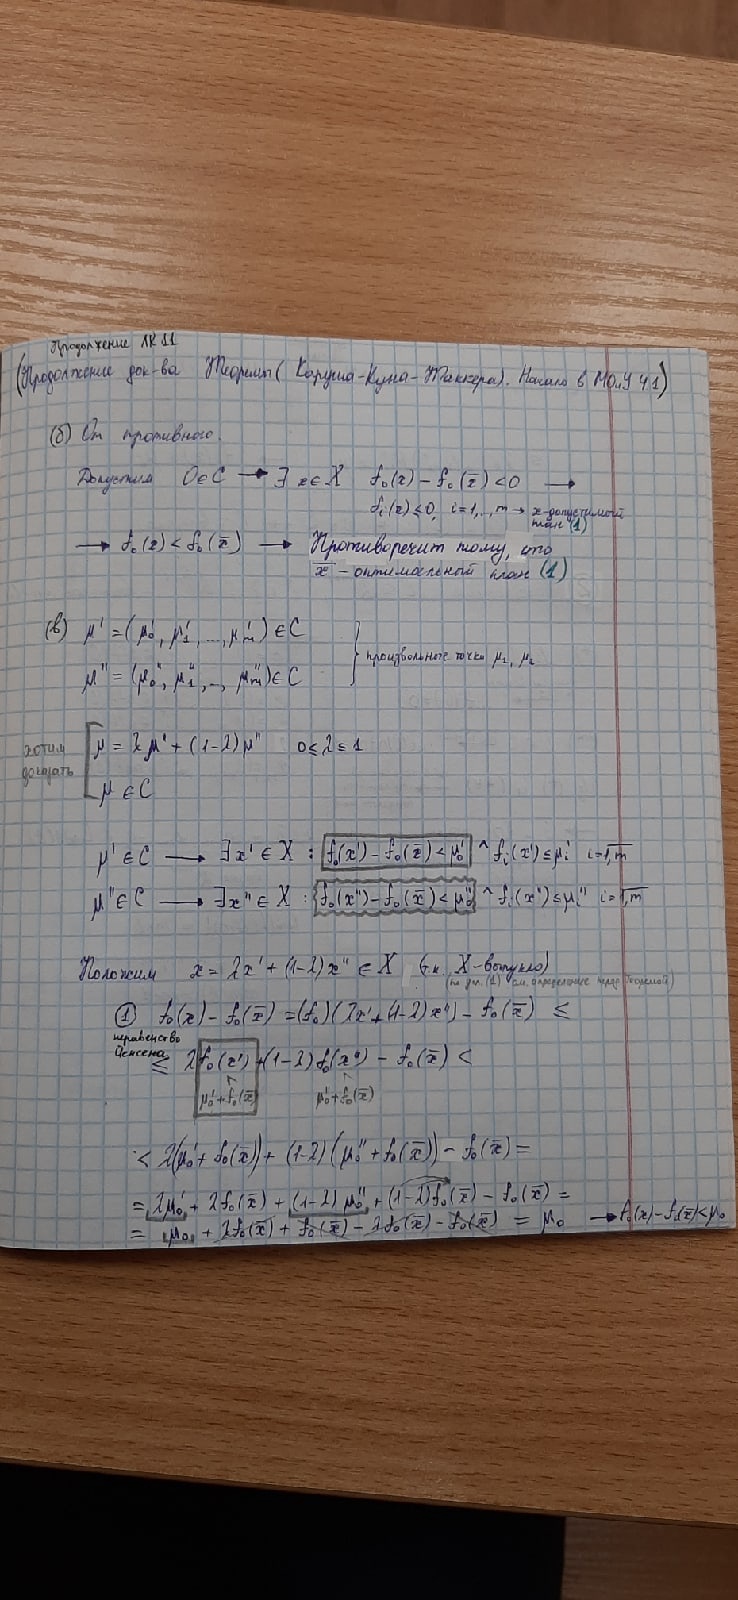 Продолжение ЛК 11
(Продолжение док-ва Теоремы (Каруша-Куна-Таккера). Начало в МОиУ Ч1)
(б) От противного.
Допустим 0∈C → ∃ x∈X f₀(x) – f₀(x̄) < 0 →
fᵢ(x) ≤ 0, i=1,..,m → x-допустимый
план (1)
→ f₀(x) < f₀(x̄) → Противоречит тому, что
x̄ – оптимальный план (1)
(в) μ' = (μ₀', μ₁', ..., μₘ') ∈ C
μ'' = (μ₀'', μ₁'', .., μₘ'') ∈ C } произвольные точки μ₁, μ₂
хотим доказать
μ = λμ' + (1-λ)μ'' 0 ≤ λ ≤ 1
μ ∈ C
μ' ∈ C → ∃ x' ∈ X : f₀(x') – f₀(x̄) < μ₀' ^ fᵢ(x') ≤ μᵢ' i=1,m
μ'' ∈ C → ∃ x'' ∈ X : f₀(x'') – f₀(x̄) < μ₀'' ^ fᵢ(x'') ≤ μᵢ'' i=1,m
Положим x = λx' + (1-λ)x'' ∈ X (т.к. X-выпукло)
(1) см. определение перед Теоремой)
① f₀(x) – f₀(x̄) = (f₀)(λx' + (1-λ)x'') – f₀(x̄) ≤
неравенство
Йенсена
≤ λ f₀(x') + (1-λ) f₀(x'') – f₀(x̄) <
μ₀' + f₀(x̄) μ₀'' + f₀(x̄)
< λ(μ₀' + f₀(x̄)) + (1-λ)(μ₀'' + f₀(x̄)) – f₀(x̄) =
= λμ₀' + λf₀(x̄) + (1-λ)μ₀'' + (1-λ)f₀(x̄) – f₀(x̄) =
= μ₀ + λf₀(x̄) + f₀(x̄) – λf₀(x̄) – f₀(x̄) = μ₀ → f₀(x) – f₀(x̄) < μ₀